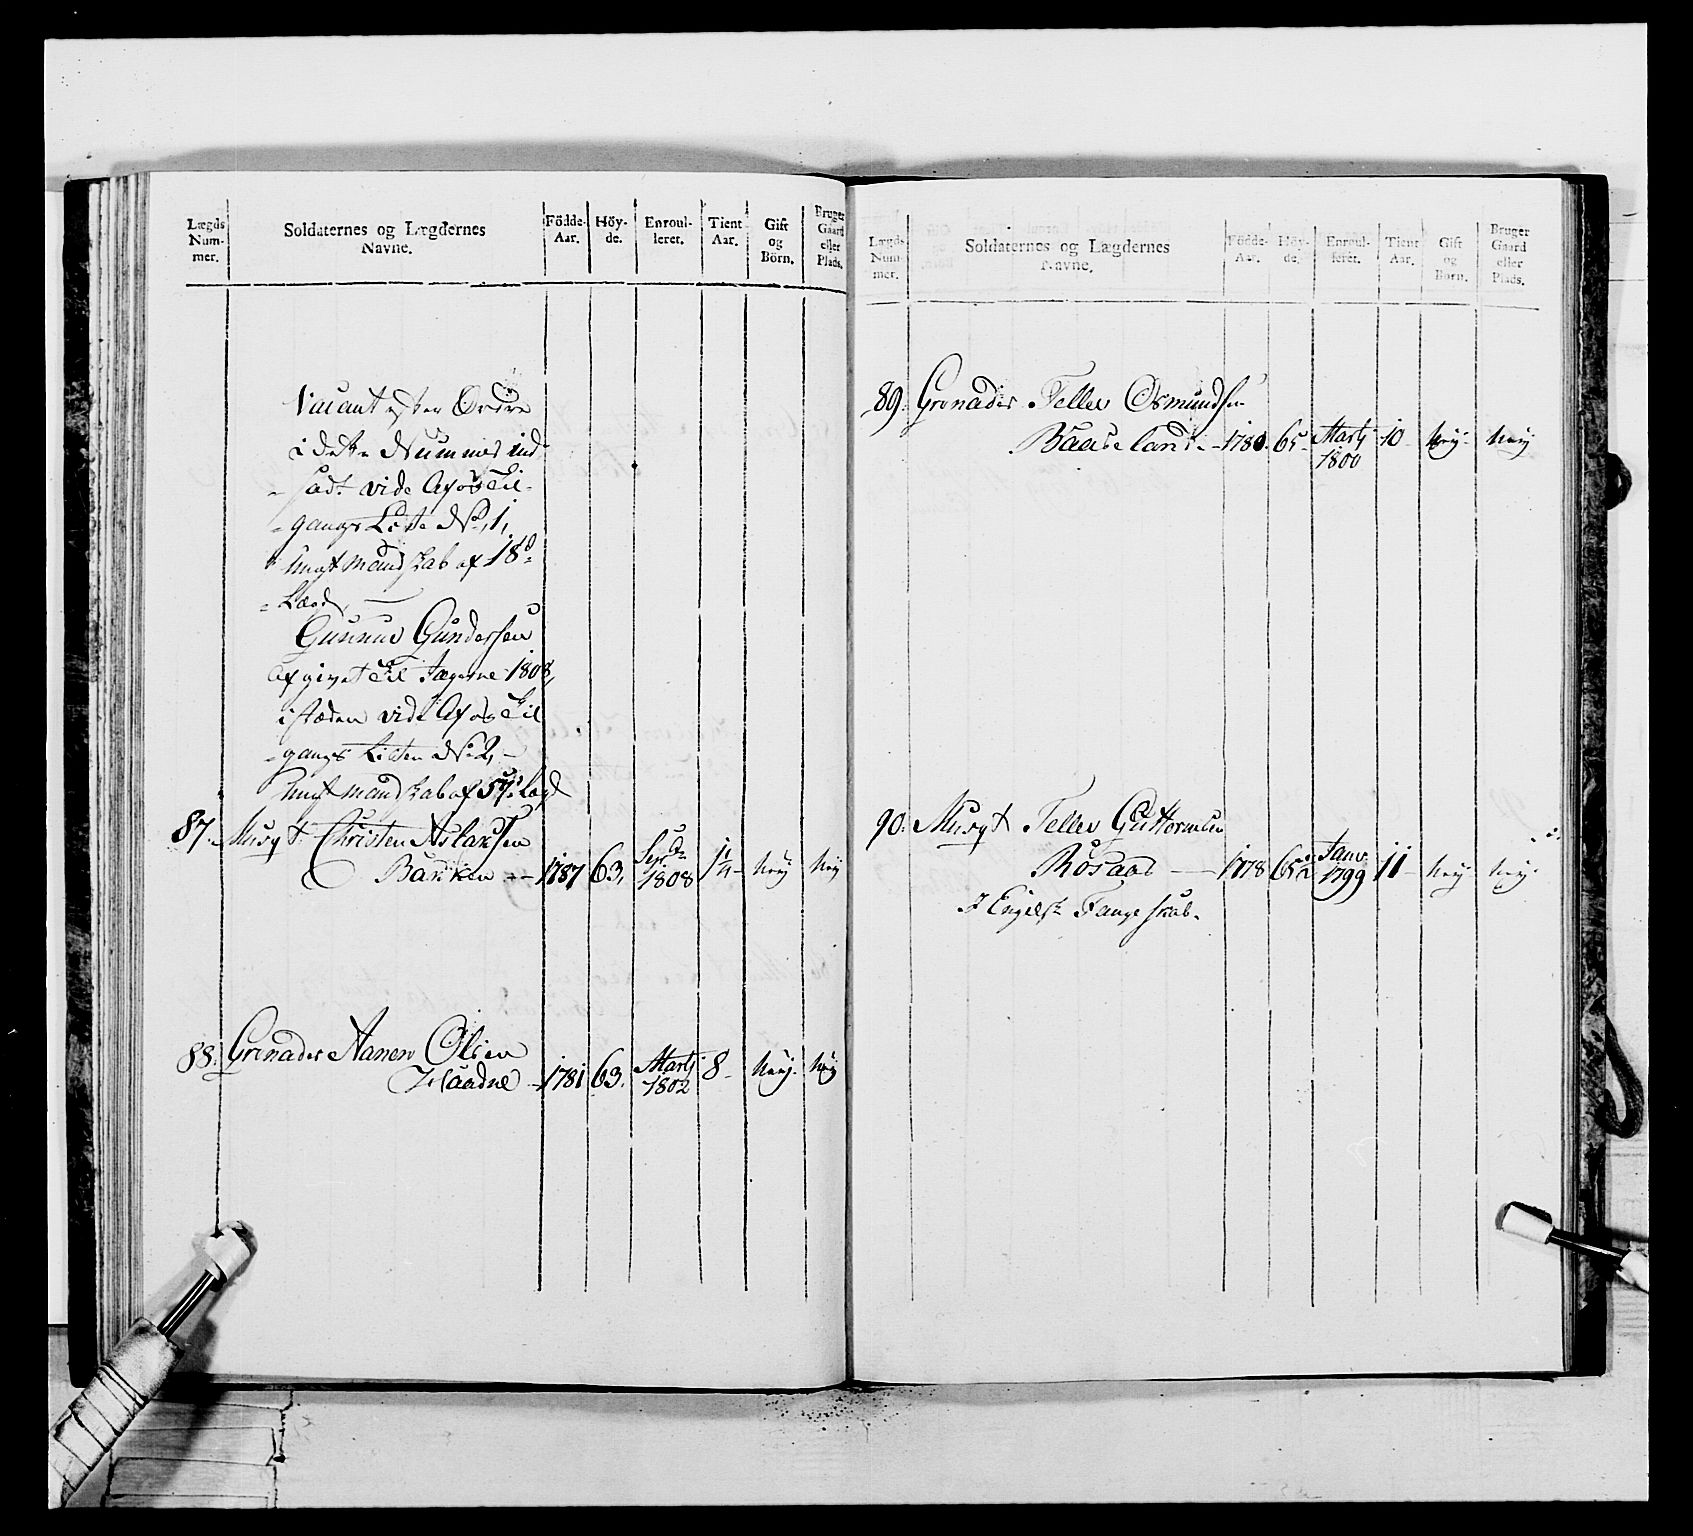 Lægds Num- mer.
Soldaternes og Lægdernes Navne.
Födde- Aar.
Höy- de.
Enroul- leret.
Tient Aar.
Gift og Börn.
Bruger Gaard eller Plads.
Vacant efter Ordre
i dette Nummer ind-
- sadt vide Af og Til-
- gangs Liste No. 1,
ungt mandskab af 18d
- Lægd,
Gunnuv Gundersen
Afgivet til Jægerne 1808,
i stæden vide Af og Til
- gangs Listen No. 2, -
ungt mandskab af 57 Lægd
87. Musqt Christen Aslaksen
Barken - 1787 63, Sept 1808 1 1/4 Neij Neij
88. Grenader Aanen Olsen
Haadne - 1781 63. Martj 1802 8 - Neij. Neij
Lægds Num- mer.
Soldaternes og Lægdernes Navne.
Födde- Aar.
Höy- de.
Enroul- leret.
Tient Aar.
Gift og Börn.
Bruger Gaard eller Plads.
89. Grenader Tellev Osmundsen
Baaseland - 1780. 65 - Martj 1800 10 - Neij - Neij
90. Musqt Tellev Guttormsen
Rosaas - 1778 65 1/2 Janv 1799 11 - Neij - Neij.
I Engelsk Fangeskab.